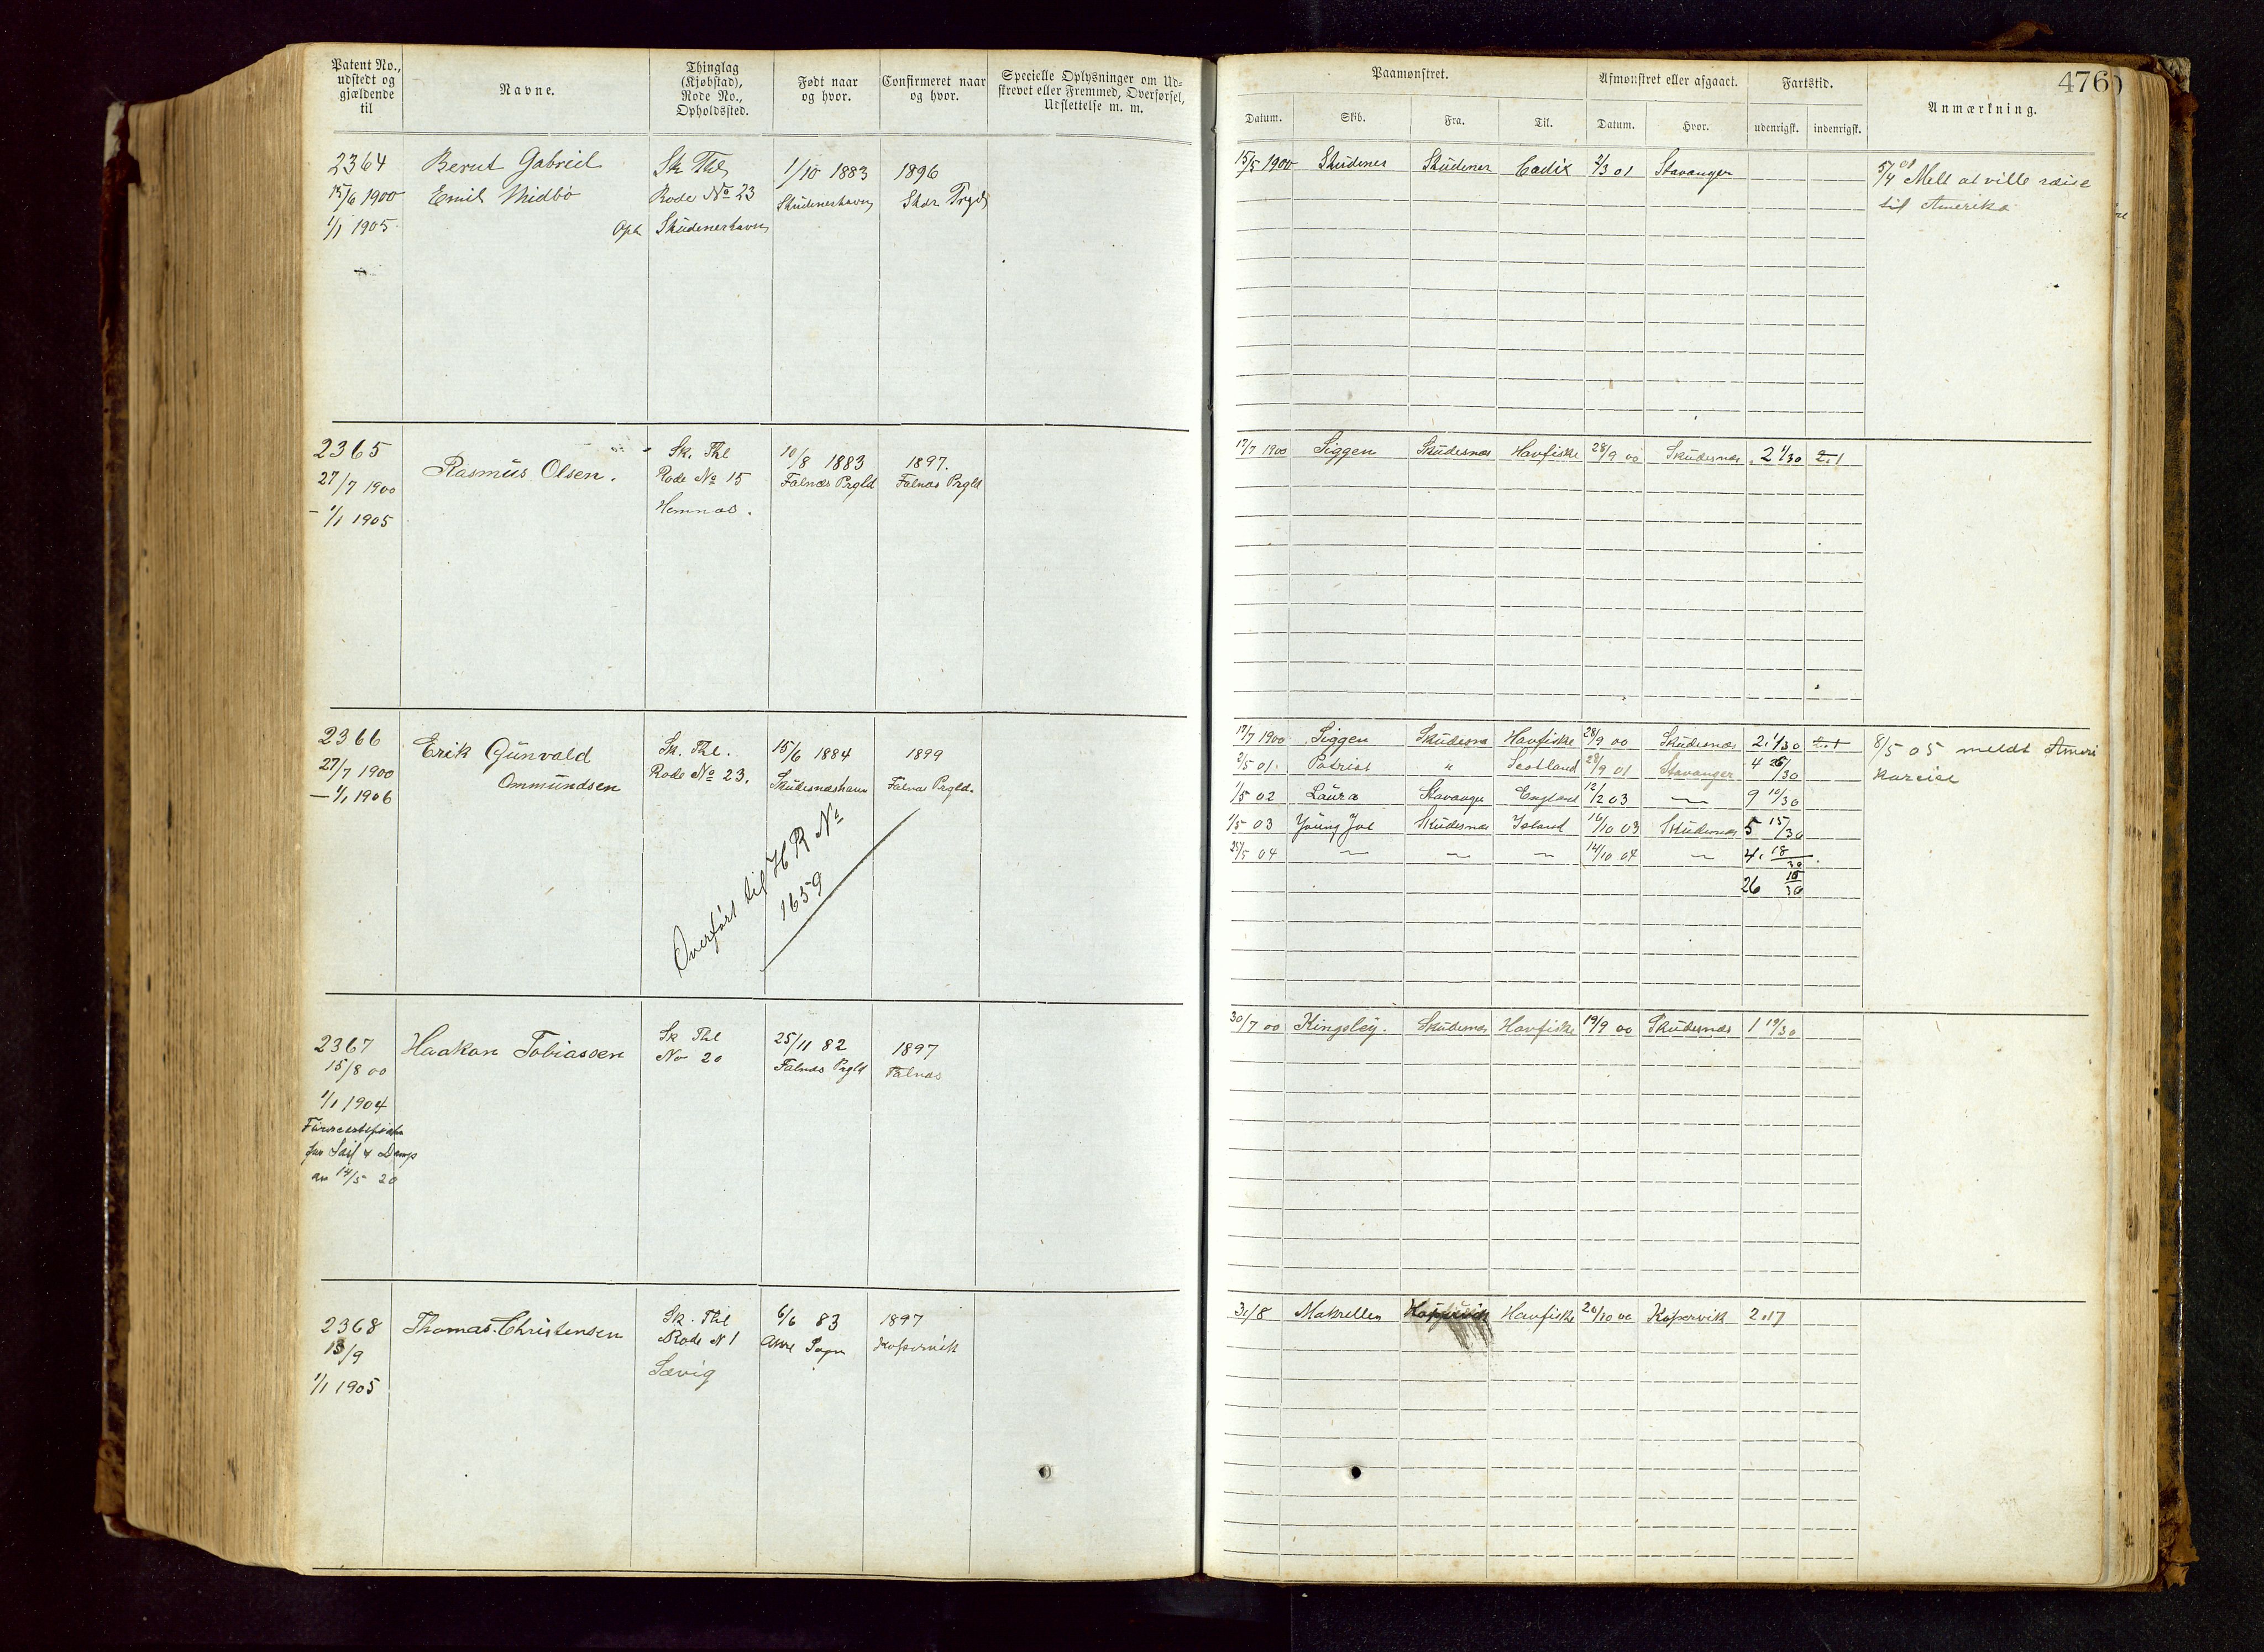 Patent No., udstedt og gjældende til
Navne.
Thinglag (Kjøbstad), Rode No., Opholdssted.
Født naar og hvor.
Confirmeret naar og hvor.
Specielle Oplysninger om Udskrevet eller Fremmed, Overførsel, Udslettelse m. m.
Paamønstret.
Afmønstret eller afgaaet.
Fartstid.
Anmærkning.
476
Datum. Skib. Fra. Til. Datum. Hvor. udenrigsk. indenrigsk.
2364 Bernt Gabriel Sk Thl 1/10 1883 1896
15/6 1900 Emil Midbö Rode No 23 Skudeneshavn Prgld
1/1 1905 Oph Skudeneshavn
15/5 1900 Skudenes Skudenes Cadix 2/3 01 Stavanger
5/4 01 Meldt at ville reise
til Amerika
2365 Rasmus Olsen. Sk. Thl 10/8 1883 1897.
27/7 1900 Rode No 15 Falnæs Prgld Falnæs Prgld
- 1/1 1905 Hemnæs.
17/7 1900 Siggen Skudesnæs Havfiske 28/9 00 Skudesnæs 2 1/30 2.1
2366 Erik Gunvald Sk. Thl. 15/6 1884 1899
27/7 1900 Ommundsen Rode No 23. Skudesnæshavn Falnæs Prgld.
- 1/1 1906
Overført til H R No
1659
17/7 1900 Siggen Skudesnæs Havfiske 28/9 00 Skudesnæs 2.1/30 2.1
2/5 01. Patriot " Scotland 28/9 01 Stavanger 4 26/30
1/5 02 Laura Stavanger England 12/2 03 — 9 10/30
1/5 03 Young Joe Skudesnæs Island 16/10 03 Skudesnæs 5 15/30
25/5 04 — — — 14/10 04 — 4. 18/30
26 10/30
8/5 05 meldt Ameri
kareise
2367 Haakon Tobiassen Sk Thl 25/11 82 1897
15/8 00 No 20 Falnæs Prgld Falnæs
1/1 1904
for Seil & Damp
av 14/5 20
30/7 00 Kingsley. Skudesnæs Havfiske 19/9 00 Skudesnæs 1 19/30
2368 Thomas Christensen Sk. Thl 6/6 83 1897
13/9 Rode N 1 Sogn Kopervik
1/1 1905 Sævig
31/8 Makrellen Kopervik Havfiske 20/10 00 Kopervik 2.17